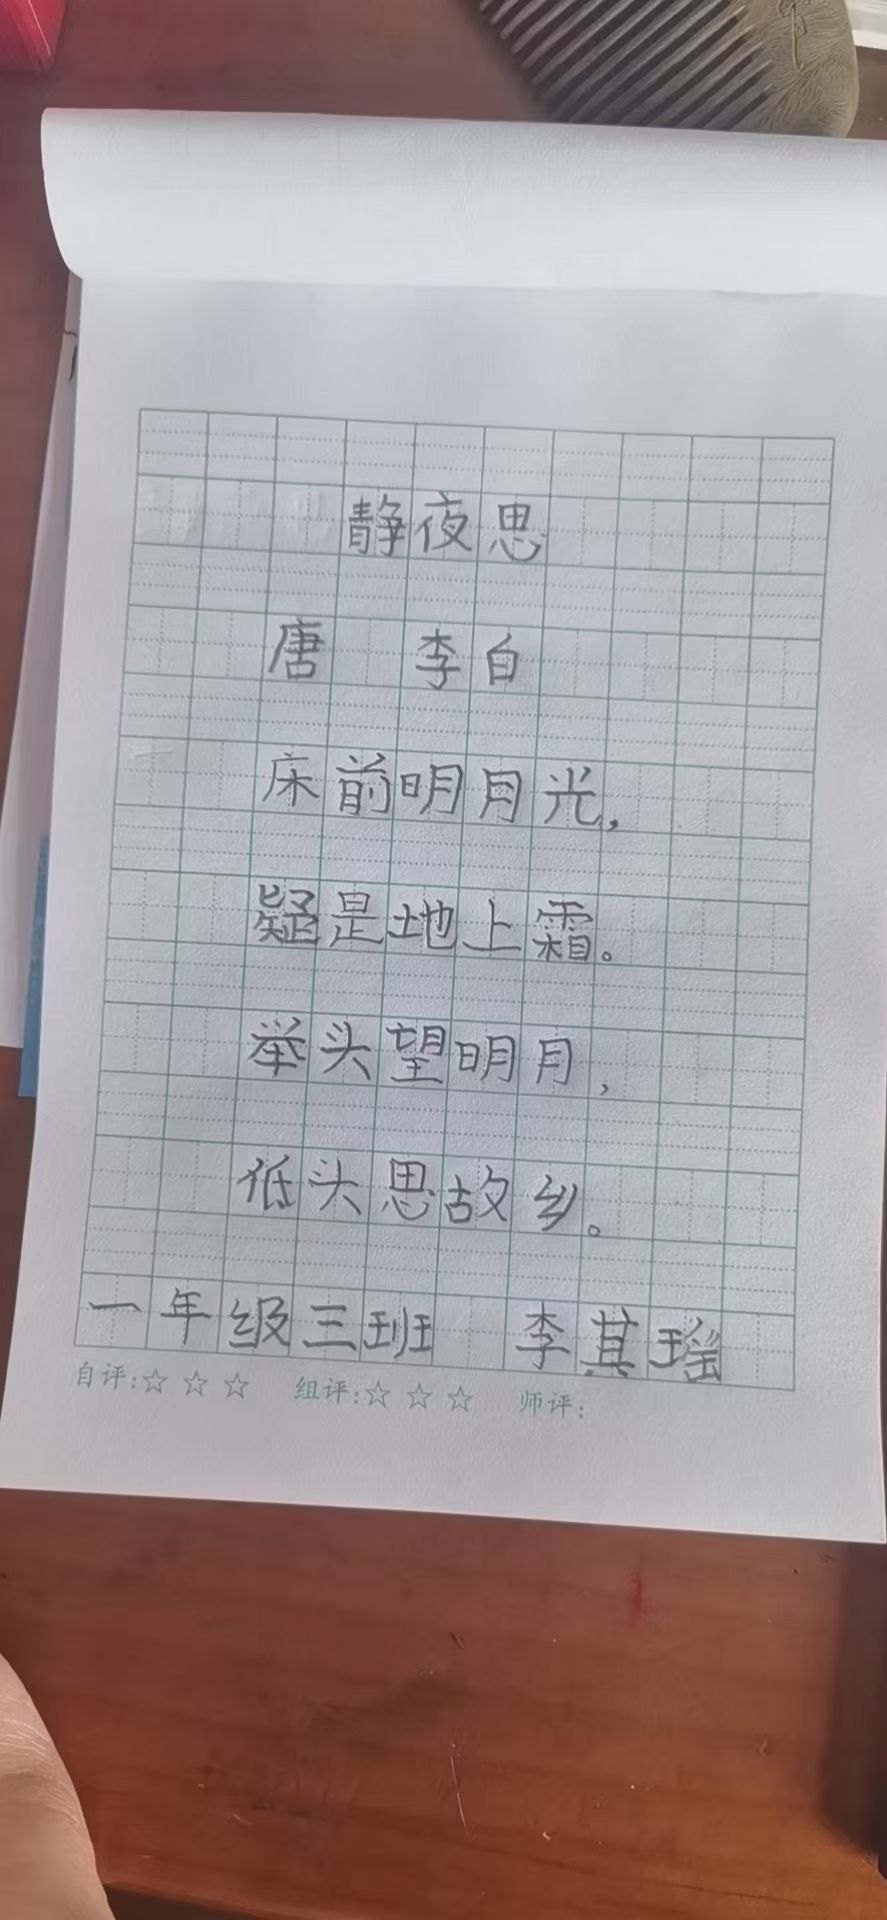 静夜思
唐 李白
床前明月光，
疑是地上霜。
举头望明月，
低头思故乡。
一年级三班 李其瑶
自评:☆ ☆ ☆ 组评:☆ ☆ ☆ 师评: